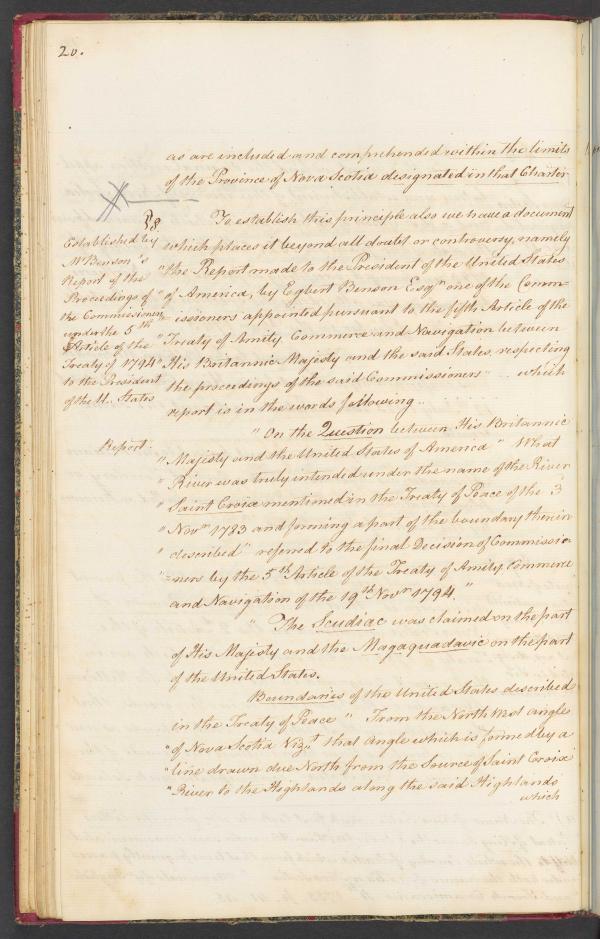 20.
as are included and comprehended within the limits
of the Province of Nova Scotia designated in that Charter
To establish this principle also we have a document
which places it beyond all doubt or controversy, namely
"the Report made to the President of the United States
"of America, by Egbert Benson Esqr. one of the Comm-
-issioners appointed pursuant to the fifth Article of the
"Treaty of Amity Commerce and Navigation between
"His Britannic Majesty and the said States, respecting
the proceedings of the said Commissioners" which
report is in the words following..
Established by
Mr Benson's
Report of the
Proceedings of
the Commissioners
under the 5th
Article of the
Treaty of 1794
to the President
of the U.. States
Report.
"On the Question between His Britannic
"Majesty and the United States of America" What
"River was truly intended under the name of the River
"Saint Croix mentioned in the Treaty of Peace of the 3
"Novr 1783 and forming a part of the boundary therein
"described" referred to the final Decision of Commissio-
"=ners by the 5th Article of the Treaty of Amity Commerce
and Navigation of the 19th Novr 1794."
"The Scudiac was claimed on the part
of His Majesty and the Magaguadavic on the part
of the United States.
Boundaries of the United States described
in the Treaty of Peace "From the North West angle
"of Nova Scotia Vizt. that Angle which is formed by a
"line drawn due North from the Source of Saint Croix
"River to the Highlands along the said Highlands
which